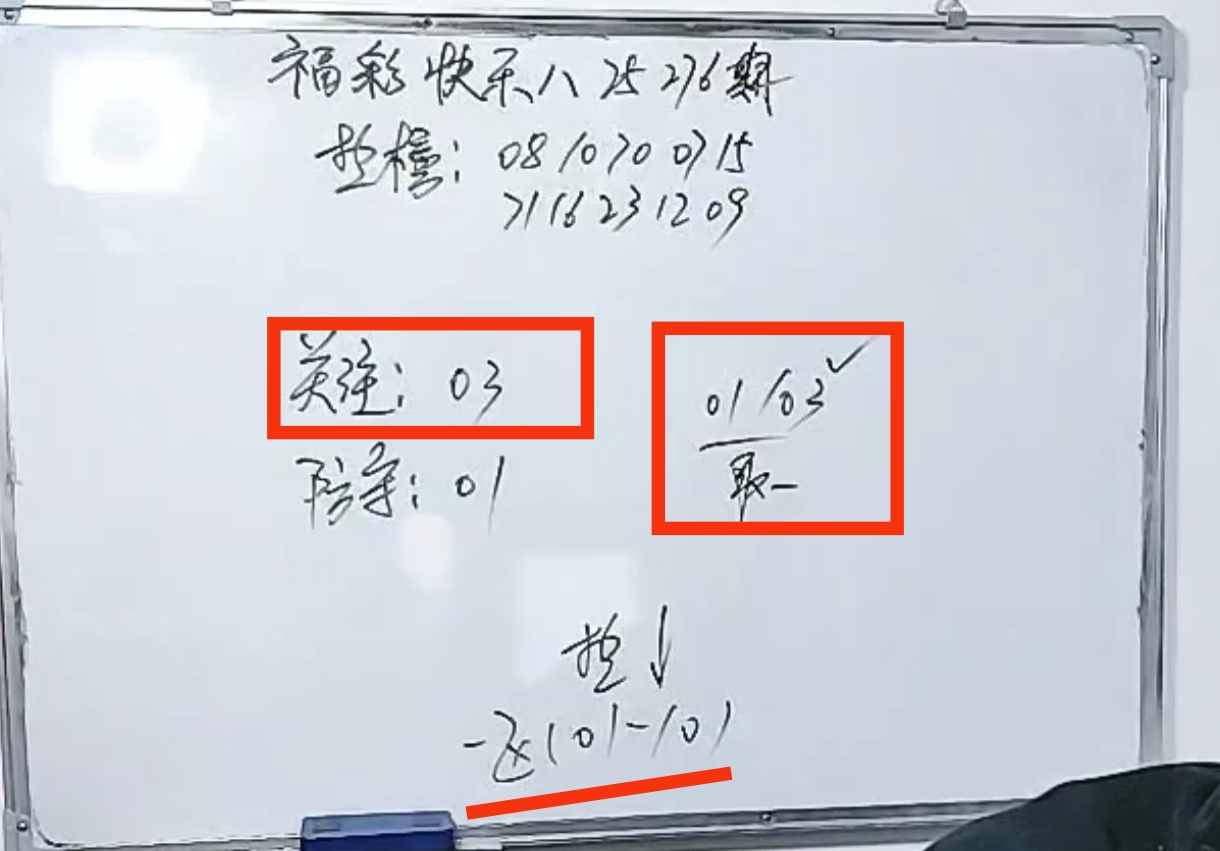 福彩快乐八 25 276期
控榜: 08 10 70 07 15
71 16 23 12 09
关注: 03
01/03✓
取一
防守: 01
控↓
一区(01-10)